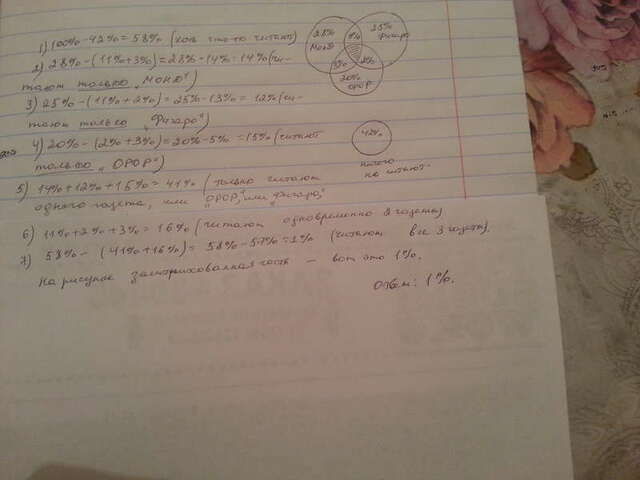 1) 100% - 42% = 58% (хоть что-то читают)
2) 28% - (11% + 3%) = 28% - 14% = 14% (чи-
тают только „Монд")
3) 25% - (11% + 2%) = 25% - 13% = 12% (чи-
тают только „Фигаро")
4) 20% - (2% + 3%) = 20% - 5% = 15% (читают
только „ОРОР")
5) 14% + 12% + 15% = 41% (только читают
одного газета, или „ОРОР", или „Фигаро",
6) 11% + 2% + 3% = 16% (читают одновременно 2 газеты)
7) 58% - (41% + 16%) = 58% - 57% = 1% (читают все 3 газеты).
На рисунке заштрихованная часть — вот это 1%.
Ответ: 1%.
28%
Монд
25%
Фигаро
3%
2%
20%
ОРОР
42%
ничего
не читают